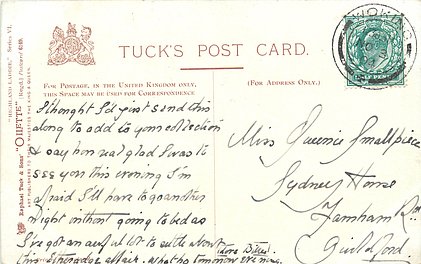 "HIGHLAND LADDIE," Series VI.
Raphael Tuck & Sons' "OILETTE" [Regd.] Postcard 9319.
ART PUBLISHERS TO THEIR MAJESTIES THE KING & QUEEN.
TUCK'S POST CARD.
FOR POSTAGE, IN THE UNITED KINGDOM ONLY,
THIS SPACE MAY BE USED FOR CORRESPONDENCE
(FOR ADDRESS ONLY.)
WOKING
I thought I'd just send this
along to add to your collection
& say how real glad I was to
see you this evening I'm
afraid I'll have to go another
night without going to bed as
I've got an awful lot to settle about
this affair. what ho tomorrow evening.
love Bill.
Miss Queenie Smallpiece
Sydney House
Farnham Rd
Guildford.